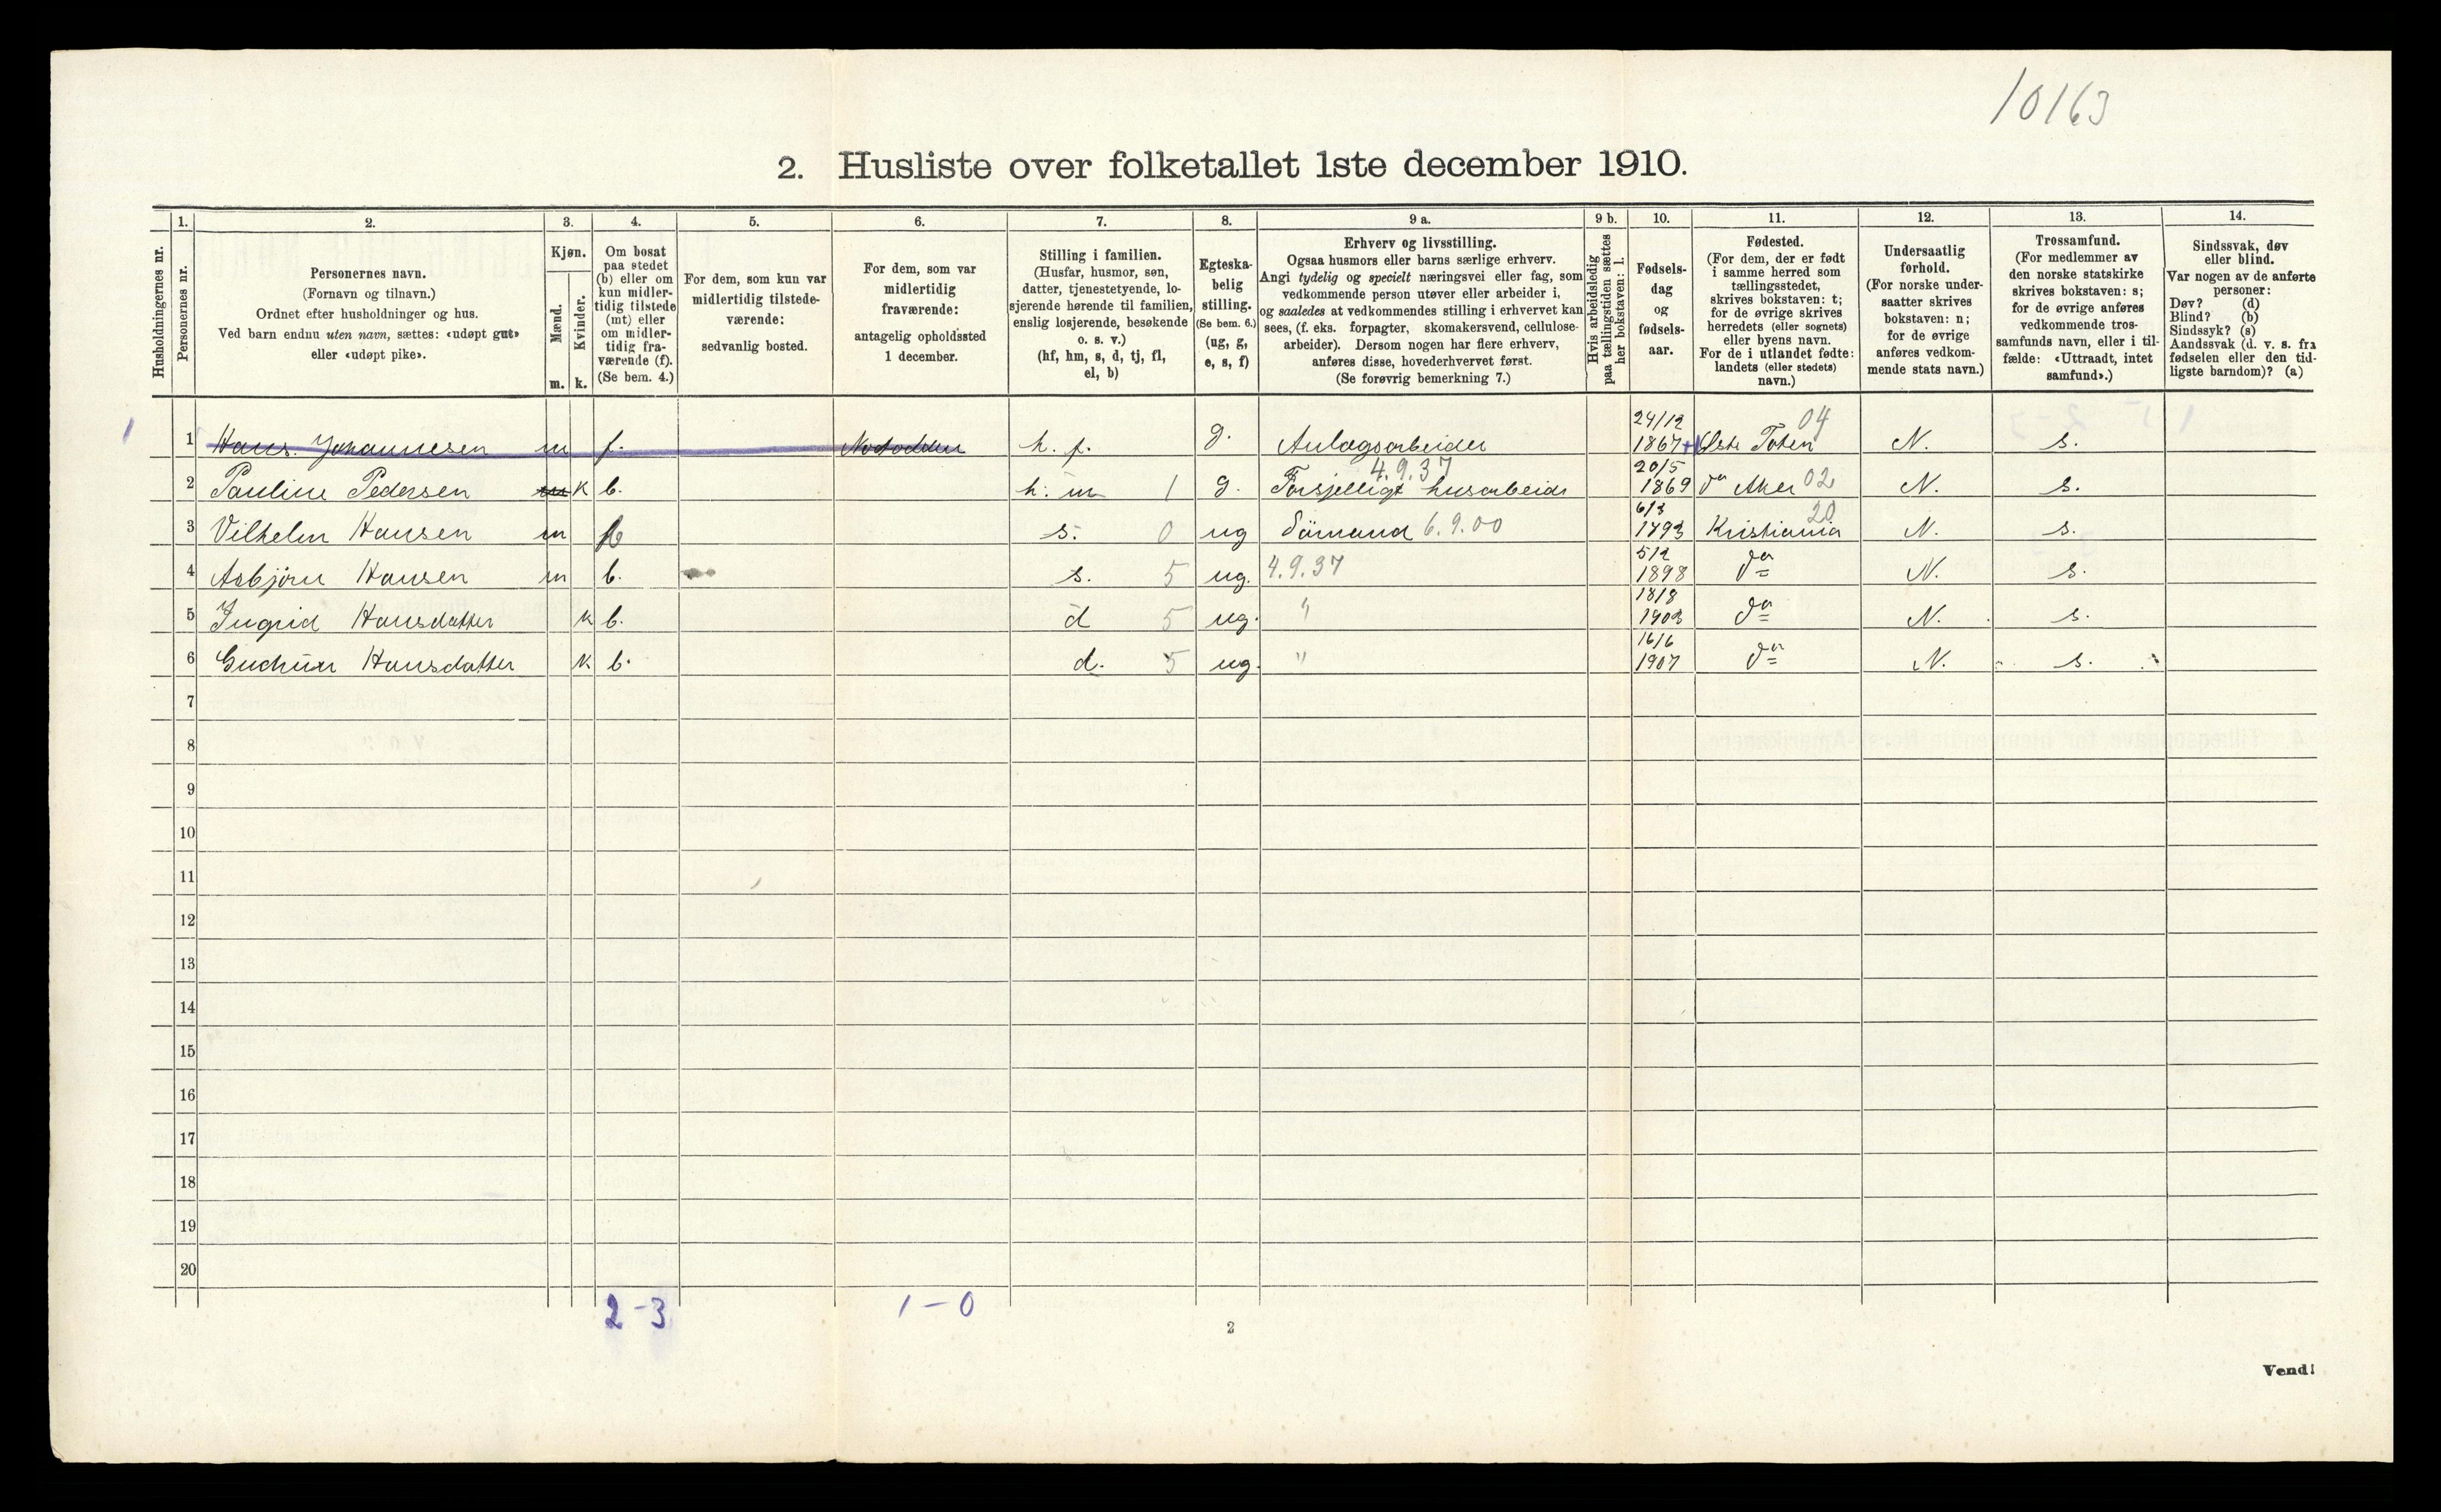 10163
2. Husliste over folketallet 1ste december 1910.
Husholdningernes nr.
1. Personernes nr.
2. Personernes navn.
(Fornavn og tilnavn.)
Ordnet efter husholdninger og hus.
Ved barn endnu uten navn, sættes: «udøpt gut»
eller «udøpt pike».
3. Kjøn.
Mænd. m.
Kvinder. k.
4. Om bosat
paa stedet
(b) eller om
kun midler-
tidig tilstede
(mt) eller
om midler-
tidig fra-
værende (f).
(Se bem. 4.)
5. For dem, som kun var
midlertidig tilstede-
værende:
sedvanlig bosted.
6. For dem, som var
midlertidig
fraværende:
antagelig opholdssted
1 december.
7. Stilling i familien.
(Husfar, husmor, søn,
datter, tjenestetyende, lo-
sjerende hørende til familien,
enslig losjerende, besøkende
o. s. v.)
(hf, hm, s, d, tj, fl,
el, b)
8. Egteska-
belig
stilling.
(Se bem. 6.)
(ug, g,
e, s, f)
9 a. Erhverv og livsstilling.
Ogsaa husmors eller barns særlige erhverv.
Angi tydelig og specielt næringsvei eller fag, som
vedkommende person utøver eller arbeider i,
og saaledes at vedkommendes stilling i erhvervet kan
sees, (f. eks. forpagter, skomakersvend, cellulose-
arbeider). Dersom nogen har flere erhverv,
anføres disse, hovederhvervet først.
(Se forøvrig bemerkning 7.)
9 b. Hvis arbeidsledig
paa tællingstiden sættes
her bokstaven: l.
10. Fødsels-
dag
og
fødsels-
aar.
11. Fødested.
(For dem, der er født
i samme herred som
tællingsstedet,
skrives bokstaven: t;
for de øvrige skrives
herredets (eller sognets)
eller byens navn.
For de i utlandet fødte:
landets (eller stedets)
navn.)
12. Undersaatlig
forhold.
(For norske under-
saatter skrives
bokstaven: n;
for de øvrige
anføres vedkom-
mende stats navn.)
13. Trossamfund.
(For medlemmer av
den norske statskirke
skrives bokstaven: s;
for de øvrige anføres
vedkommende tros-
samfunds navn, eller i til-
fælde: «Uttraadt, intet
samfund».)
14. Sindssvak, døv
eller blind.
Var nogen av de anførte
personer:
Døv? (d)
Blind? (b)
Sindssyk? (s)
Aandssvak (d. v. s. fra
fødselen eller den tid-
ligste barndom)? (a)
1 1 Hans Johannesen m f. Notodden h. f. g. Anlægsarbeider 24/12 1867 Østre Toten 04 N. s.
2 Pauline Pedersen m k b. h. m 1 g. Forsjelligt husarbeide 4.9.37 20/5 1869 Aker 02 N. s.
3 Vilhelm Hansen m s. 0 ug Sömand 6.9.00 6/3 1893 Kristiania 20 N. s.
4 Asbjörn Hansen m b. s. 5 ug. 4.9.37 5/2 1898 do N. s.
5 Ingrid Hansdatter k b. d 5 ug. " 18/8 1902 do N. s.
6 Gudrun Hansdatter k b. d. 5 ug. " 16/6 1907 do N. s.
7
8
9
10
11
12
13
14
15
16
17
18
19
20
2-3 1-0
2
Vend!